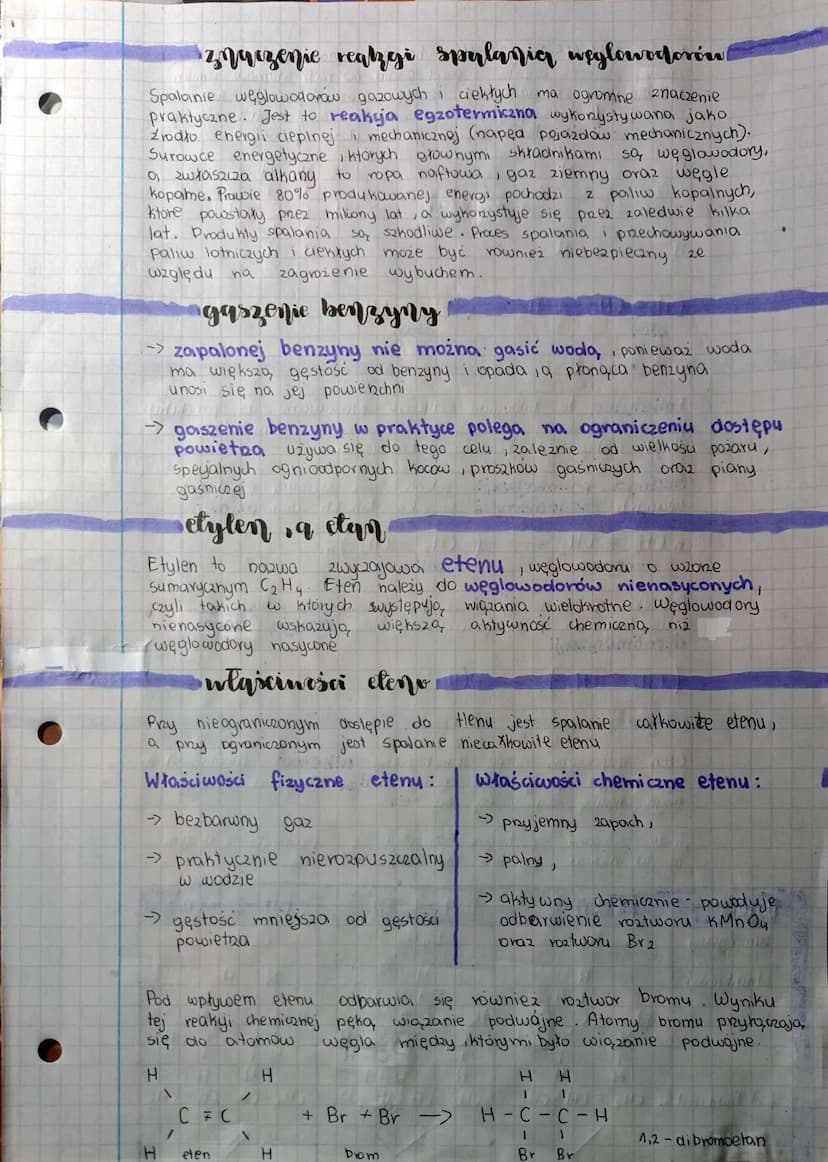 znaczenie reakcji spalania węglowodorów
Spalanie węglowodorów gazowych i ciekłych ma ogromne znaczenie
praktyczne. Jest to reakcja egzotermiczna wykorzystywana jako
źródło energii cieplnej i mechanicznej (napęd pojazdów mechanicznych).
Surowce energetyczne, których głównymi składnikami są węglowodory,
a zwłaszcza alkany to ropa naftowa, gaz ziemny oraz węgle
kopalne. Prawie 80% produkowanej energi pochodzi z paliw kopalnych,
które powstały przez miliony lat, a wykorzystuje się przez zaledwie kilka
lat. Produkty spalania są szkodliwe. Proces spalania i przechowywania
paliw lotniczych i ciekłych może być również niebezpieczny ze
względu na zagrożenie wybuchem.
gaszenie benzyny
-> zapalonej benzyny nie można gasić wodą, ponieważ woda
ma większą gęstość od benzyny i opada, a płonąca benzyna
unosi się na jej powierzchni
-> gaszenie benzyny w praktyce polega na ograniczeniu dostępu
powietrza używa się do tego celu, zależnie od wielkości pożaru,
specjalnych ognioodpornych koców, proszków gaśniczych oraz piany
gaśniczej
etylen, a etan
Etylen to nazwa zwyczajowa etenu, węglowodoru o wzorze
sumarycznym C₂H₄. Eten należy do węglowodorów nienasyconych,
czyli takich w których występują wiązania wielokrotne. Węglowodory
nienasycone wskazują większą aktywność chemiczną niż
węglowodory nasycone
właściwości etenu
Przy nieograniczonym dostępie do tlenu jest spalanie całkowite etenu,
a przy ograniczonym jest spalanie niecałkowite etenu
Właściwości fizyczne etenu:
-> bezbarwny gaz
-> praktycznie nierozpuszczalny
w wodzie
-> gęstość mniejsza od gęstości
powietrza
Właściwości chemiczne etenu:
-> przyjemny zapach,
-> palny,
-> aktywny chemicznie - powoduje
odbarwienie roztworu KMnO₄
oraz roztworu Br₂
Pod wpływem etenu odbarwia się również roztwór bromu. Wyniku
tej reakcji chemicznej pęka wiązanie podwójne. Atomy bromu przyłączają
się do atomów węgla między, którymi było wiązanie podwójne.
H H H H
\ / | |
C = C + Br - Br -> H - C - C - H
/ \ | | 1,2 - dibromoetan
H eten H brom Br Br